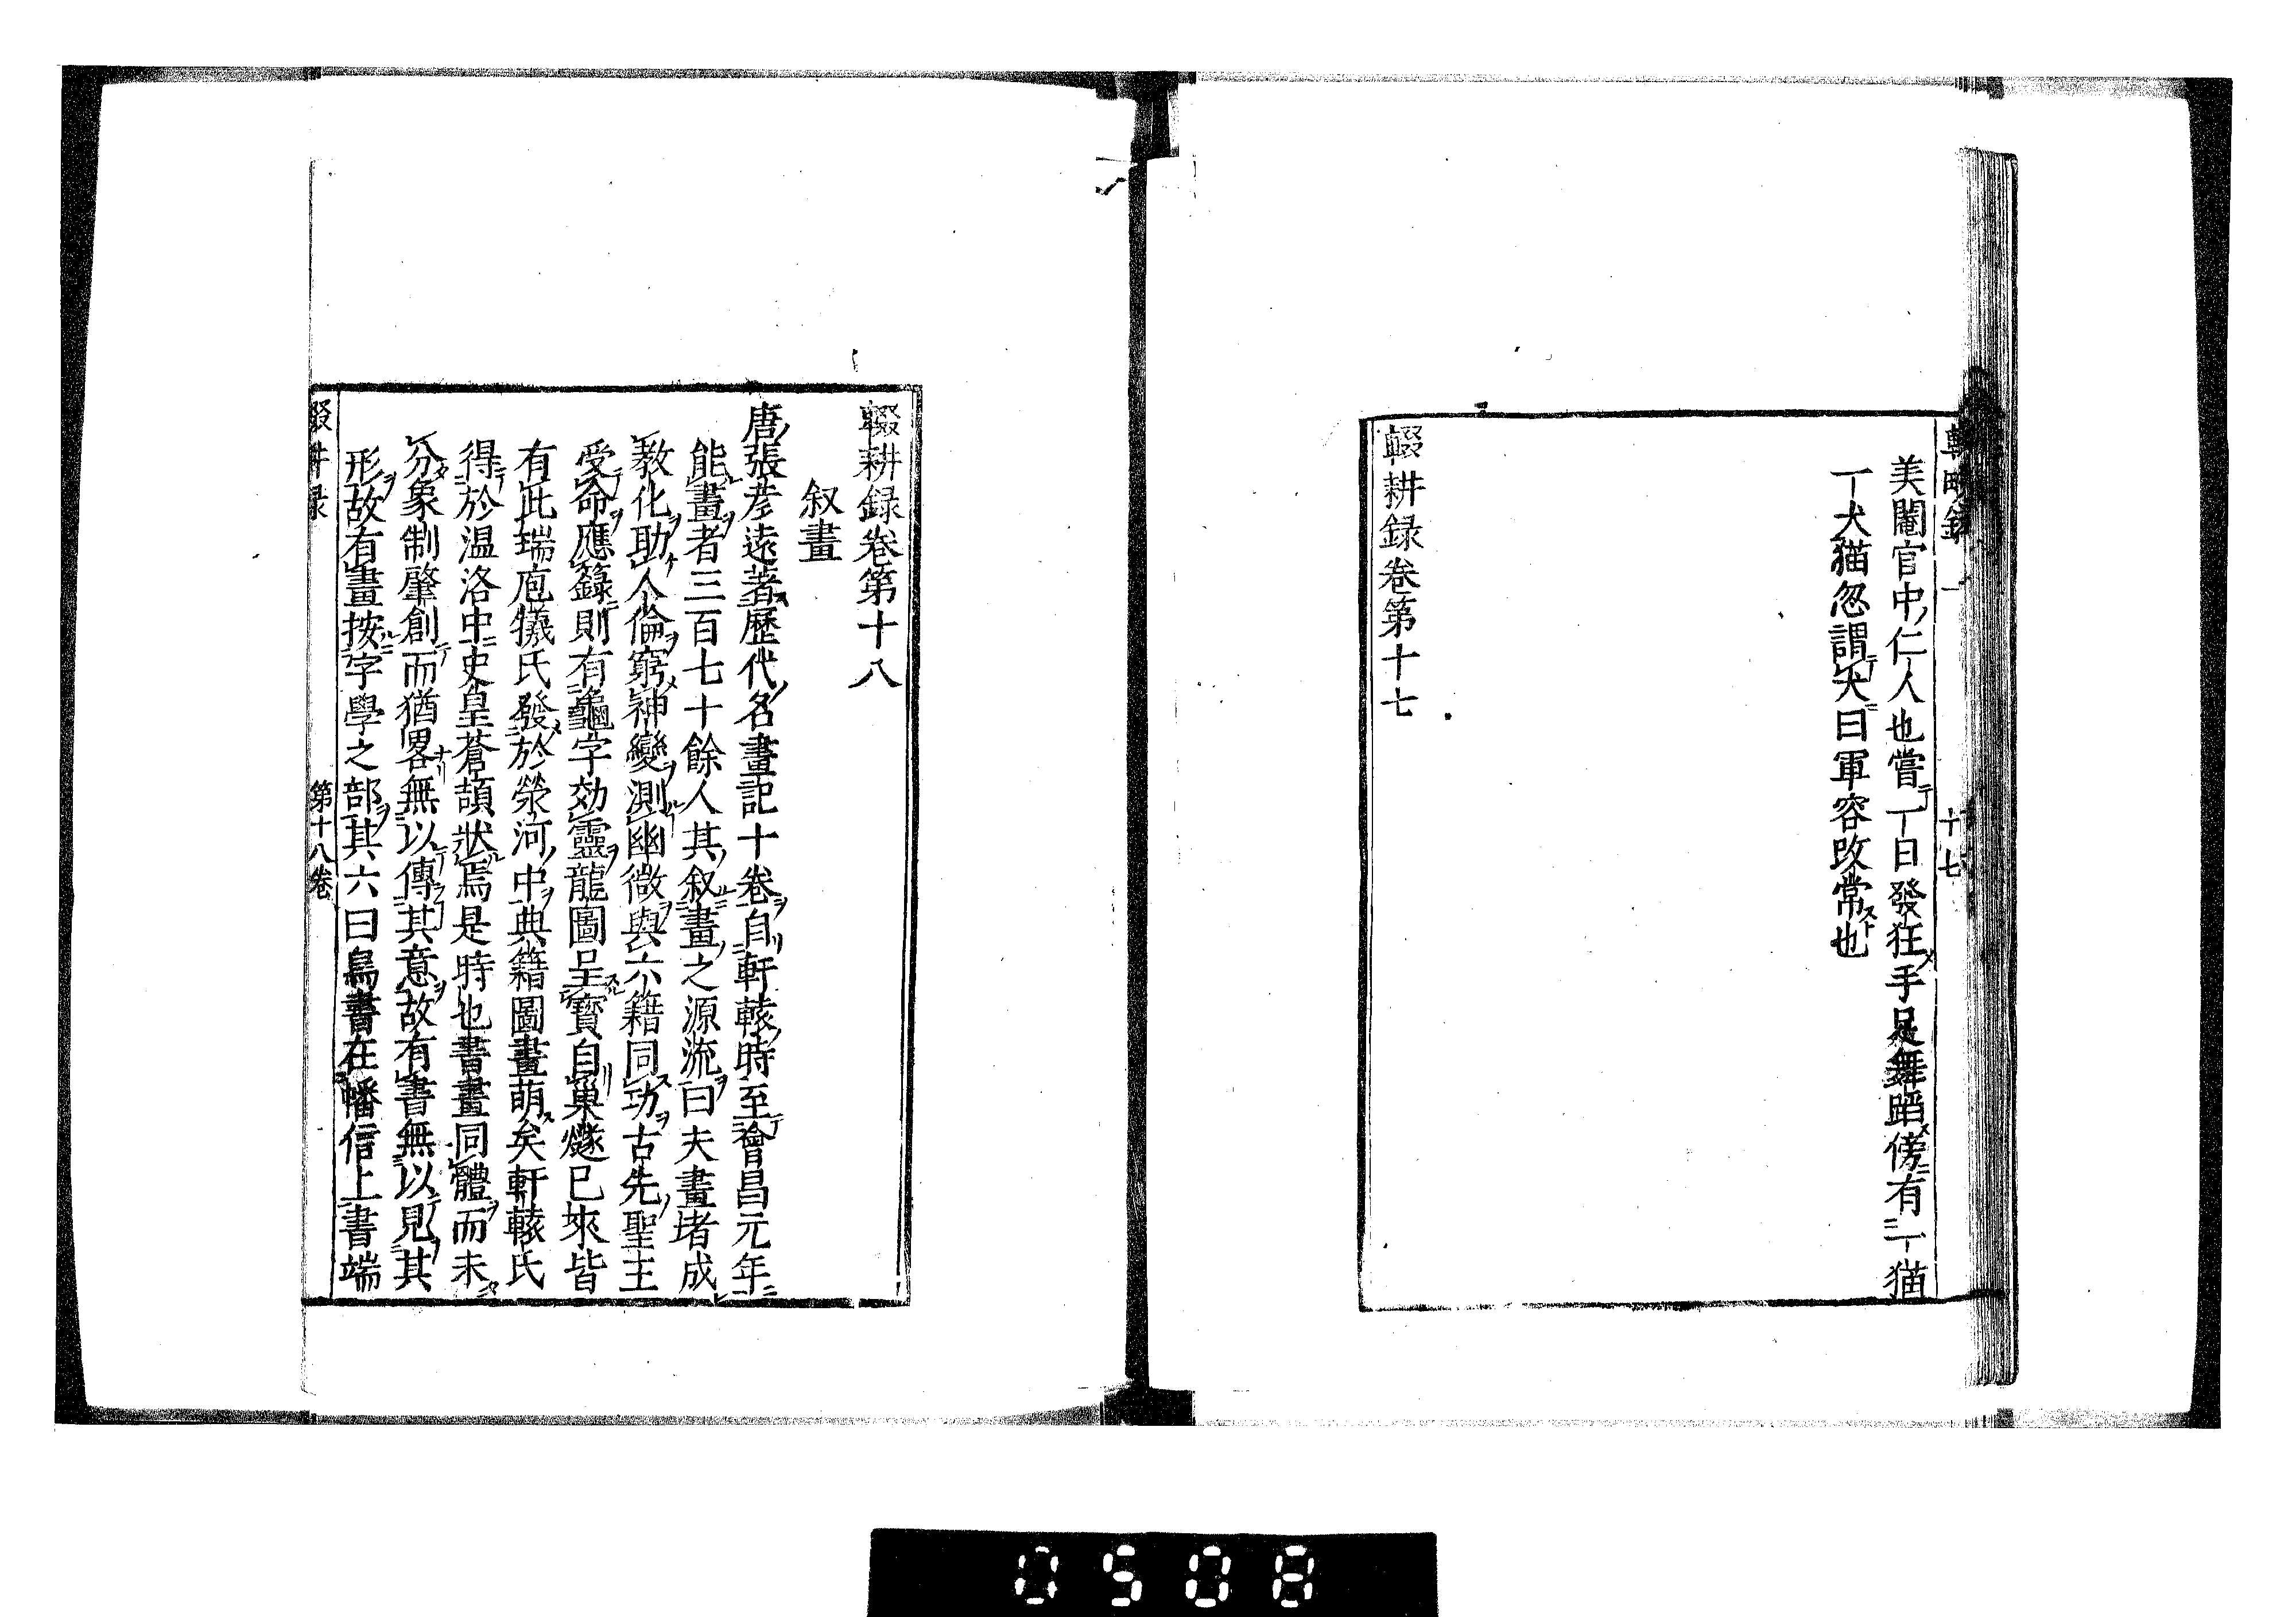 美閹官中仁人也嘗一日發狂手足舞蹈傍有一猫
一犬猫忽謂犬曰軍容改常也
輟耕録卷第十七
十七
輟耕録卷第十八
叙畫
唐張彦遠著歷代名畫記十卷自軒轅時至會昌元年
能畫者三百七十餘人其叙畫之源流曰夫畫者成
教化助人倫窮神變測幽微與六籍同功古先聖主
受命應籙則有龜字効靈龍圖呈寶自巢燧已來皆
有此瑞庖犧氏發於滎河中典籍圖畫萌矣軒轅氏
得於温洛中史皇蒼頡狀焉是時也書畫同體而未
分象制肇創而猶畧無以傳其意故有書無以見其
形故有畫按字學之部其六曰鳥書在幡信上書端
輟耕录
第十八卷
0508